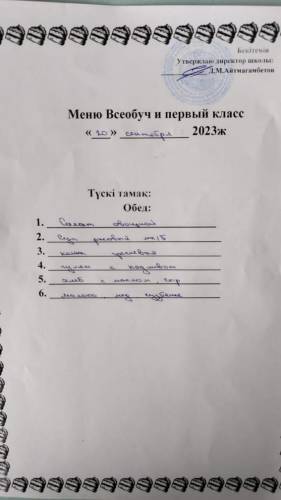 Бекітемін
Утверждаю директор школы:
Д.М.Айтмагамбетов
Меню Всеобуч и первый класс
«20» сентября 2023ж
Түскі тамақ:
Обед:
1. Салат овощной
2. Суп рисовый
3. каша гречневая
4. гуляш с подливой
5. хлеб с маслом, сыр
6. молоко, мед, печенье